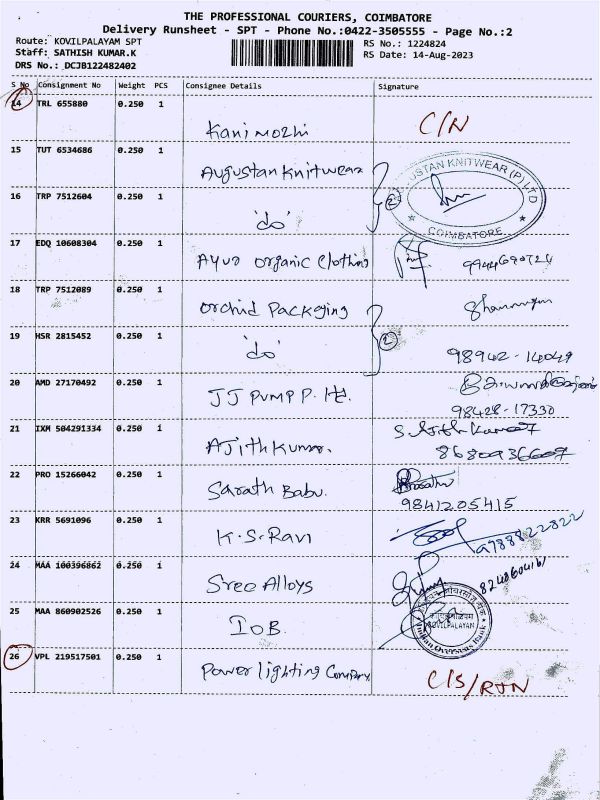 THE PROFESSIONAL COURIERS, COIMBATORE
Delivery Runsheet - SPT - Phone No.:0422-3505555 - Page No.:2
Route: KOVILPALAYAM SPT
Staff: SATHISH KUMAR.K
DRS No.: DCJB122482402
RS No.: 1224824
RS Date: 14-Aug-2023
S No Consignment No Weight PCS Consignee Details Signature
14 TRL 655880 0.250 1 Kani mozhi C/N
15 TUT 6534686 0.250 1 Augustan Knitwear
16 TRP 7512604 0.250 1 'do' 2
USTAN KNITWEAR (P) LTD
COIMBATORE
17 EDQ 10608304 0.250 1 Ayur Organic Clothing
18 TRP 7512089 0.250 1 Orchid Packaging
19 HSR 2815452 0.250 1 'do' 2 98942-14049
20 AMD 27170492 0.250 1 JJ PUMP P. ltd. 98428-17330
21 IXM 504291334 0.250 1 Ajith Kumar.
22 PRO 15266042 0.250 1 Sarath Babu. 9841205415
23 KRR 5691096 0.250 1 K.S. Ravi 9788822822
24 MAA 100396862 0.250 1 Sree Alloys 8248604161
25 MAA 860902526 0.250 1 IOB.
KOVILPALAYAM
Indian Overseas Bank
26 VPL 219517501 0.250 1 Power lighting Company C/S/RTN